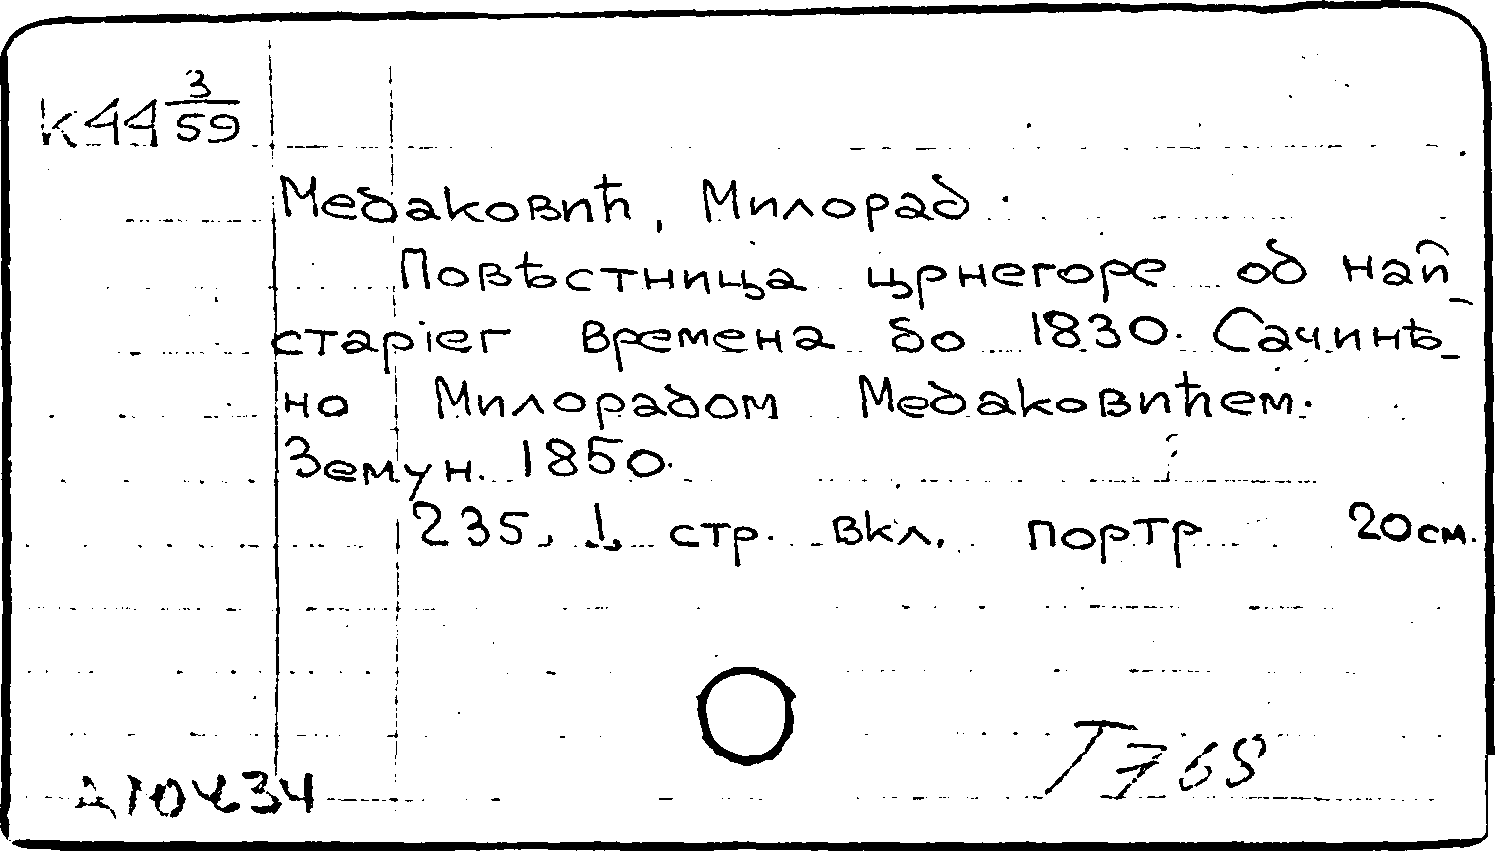 К44 3/59
Медаковић, Милорад.
Повѣстница црнегоре од най_
старіег времена до 1830. Сачинѣ_
но Милорадом Медаковићем.
Земун. 1850.
235, 1, стр. вкл. портр 20см.
Т768